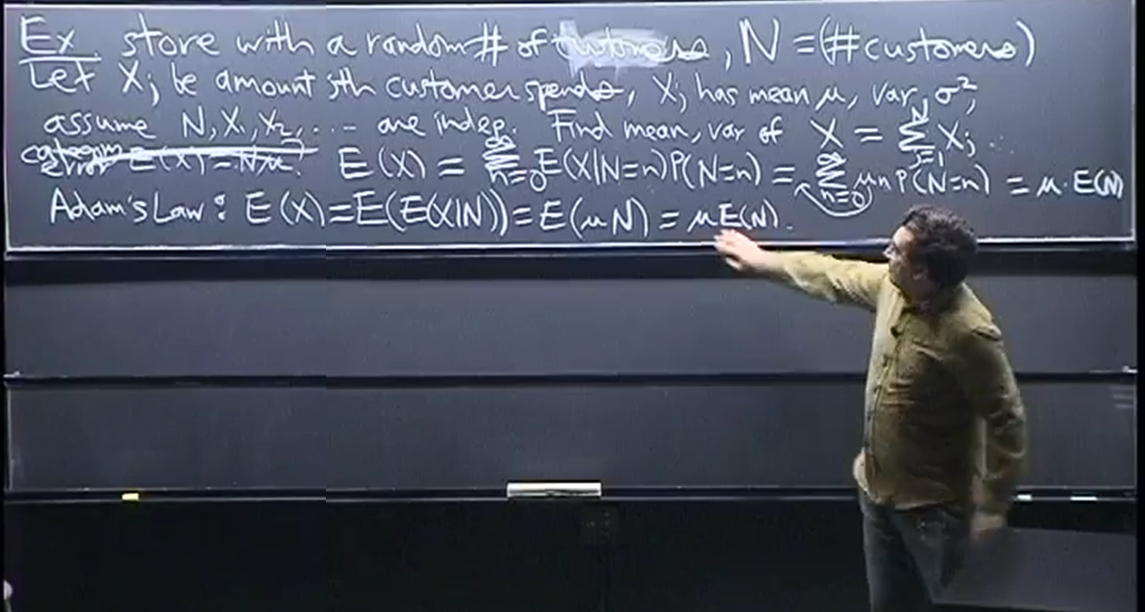 Ex store with a random # of customers, N = (# customers)
Let Xⱼ be amount jth customer spends, Xⱼ has mean μ, var σ²,
assume N, X₁, X₂, ... are indep. Find mean, var of X = Σⱼ₌₁ᴺ Xⱼ
category error E(X) = Nμ. E(X) = Σₙ₌₀^∞ E(X|N=n)P(N=n) = Σₙ₌₀^∞ μn P(N=n) = μ·E(N)
Adam's Law: E(X) = E(E(X|N)) = E(μN) = μE(N).